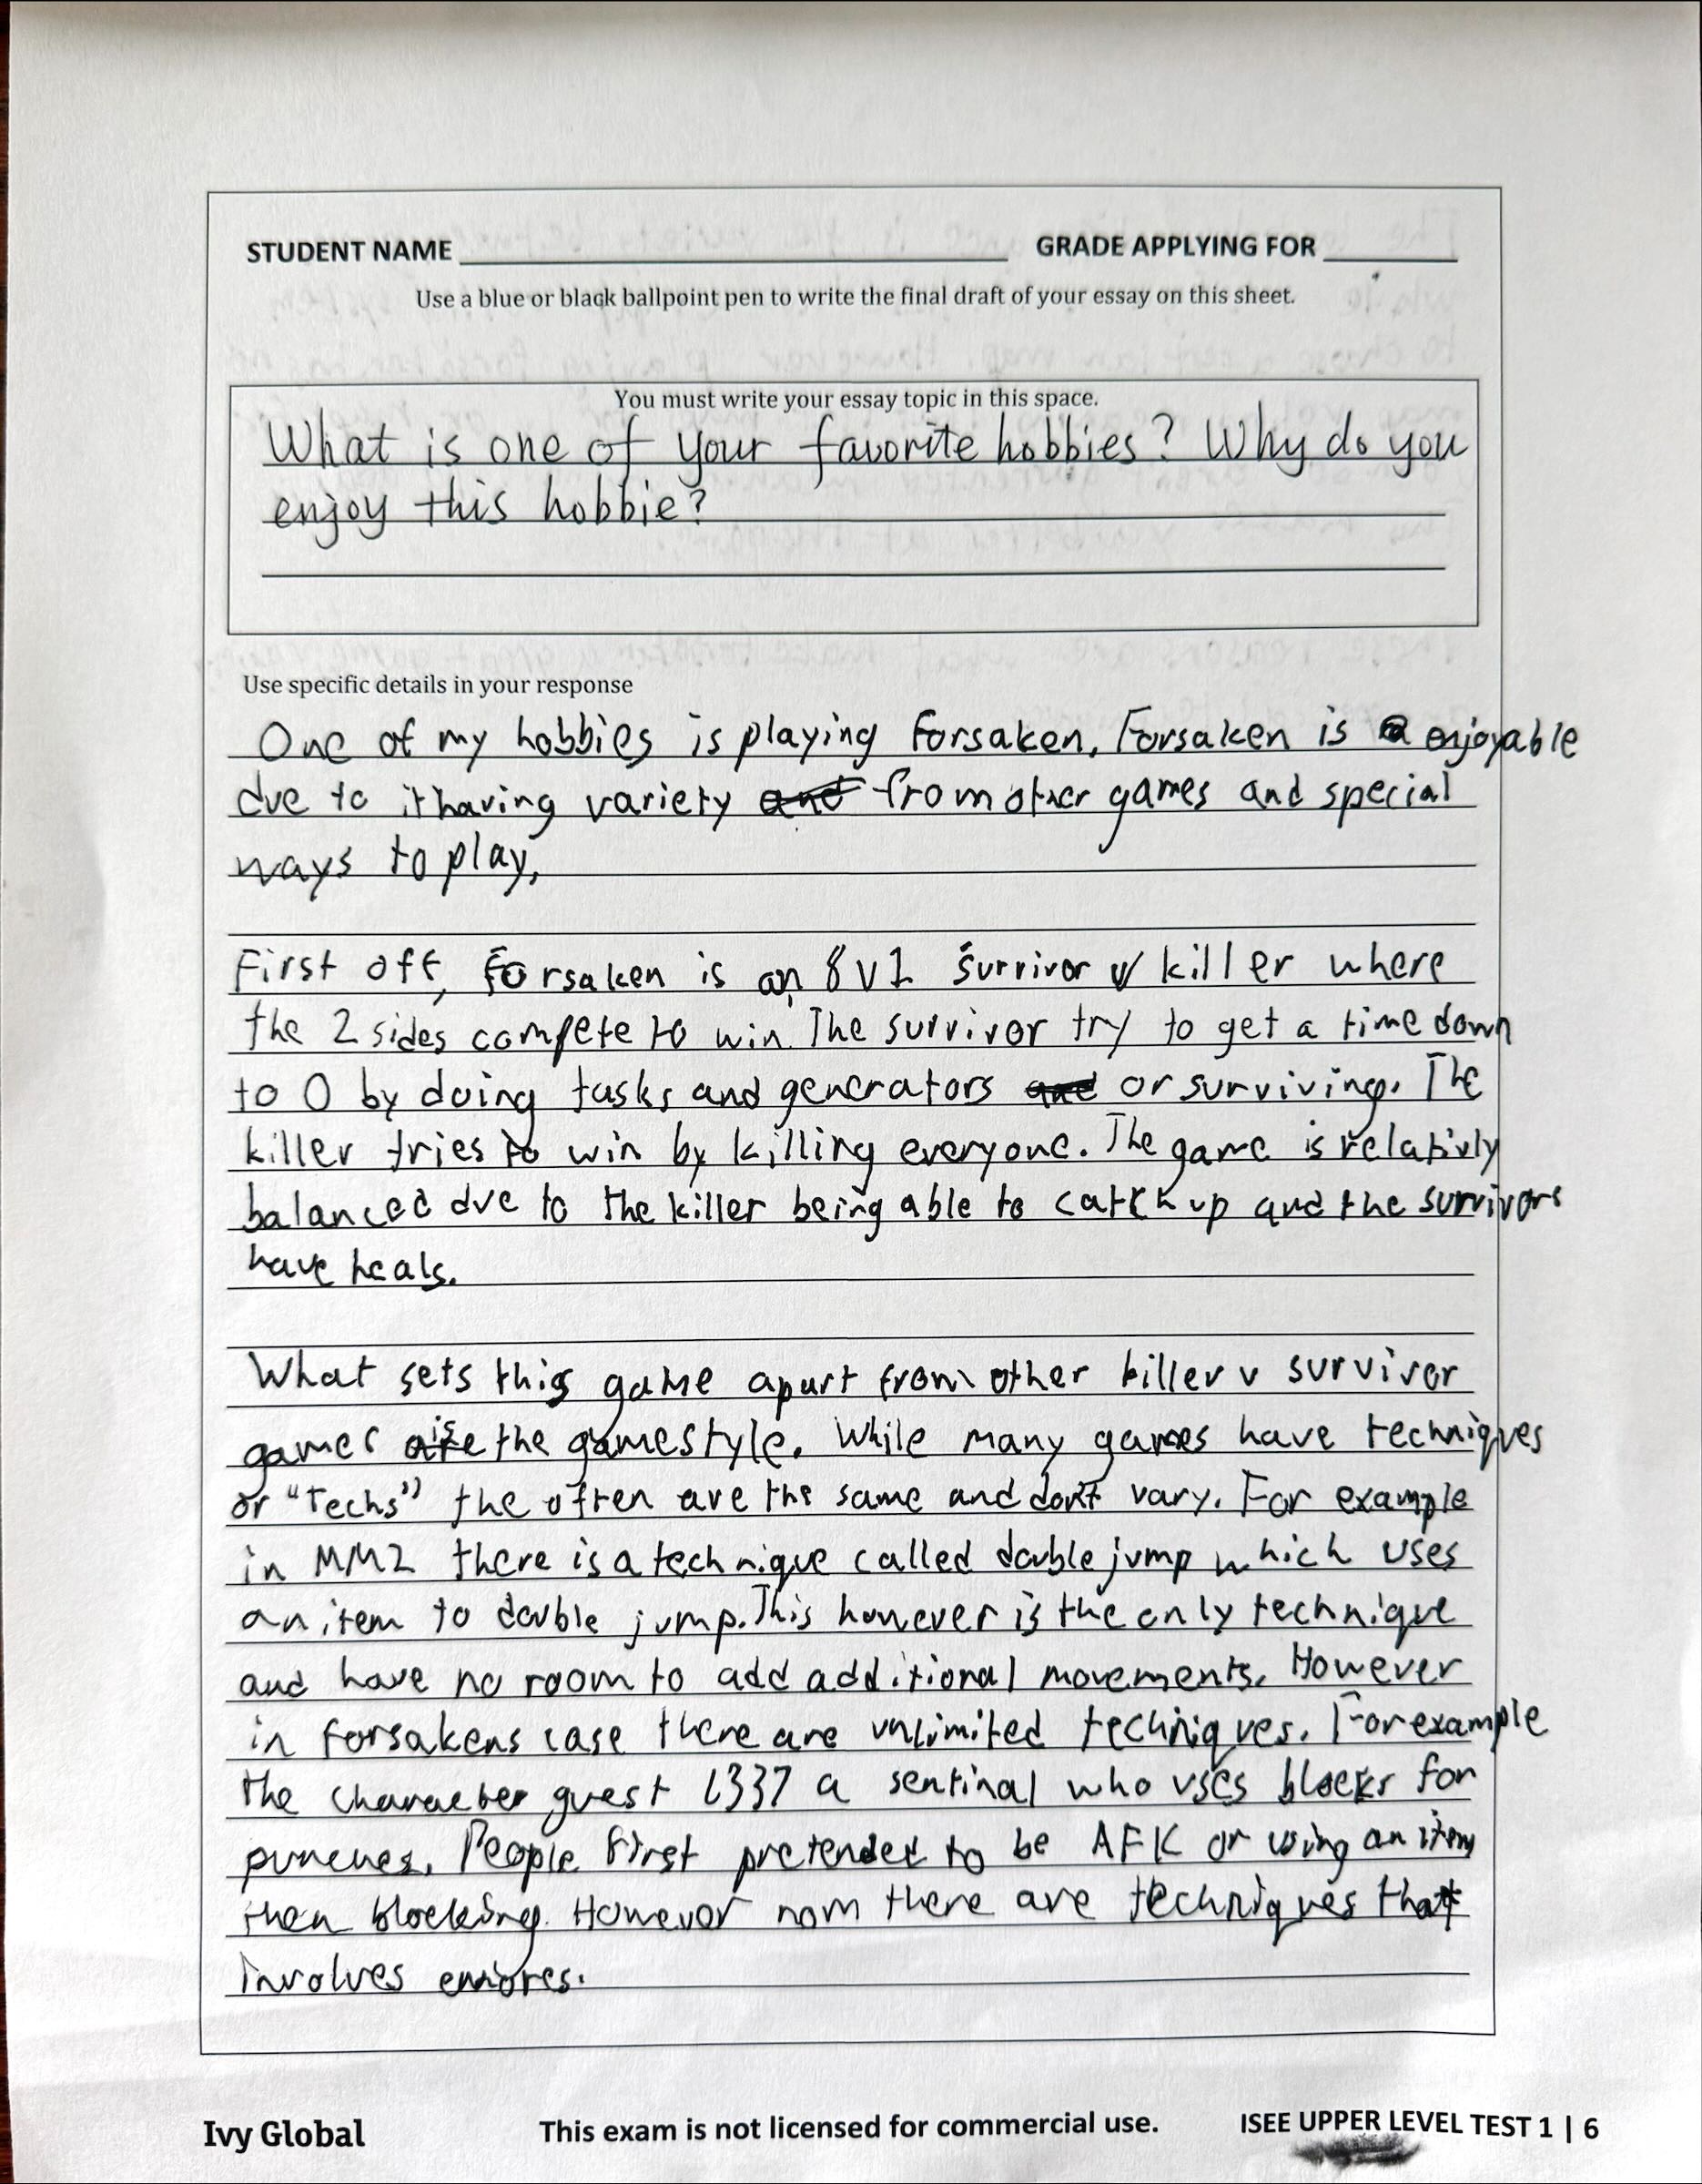 STUDENT NAME GRADE APPLYING FOR
Use a blue or black ballpoint pen to write the final draft of your essay on this sheet.
You must write your essay topic in this space.
What is one of your favorite hobbies? Why do you
enjoy this hobbie?
Use specific details in your response
One of my hobbies is playing forsaken. Forsaken is enjoyable
due to it having variety from other games and special
ways to play.
First off, Forsaken is an 8v1 survivor v killer where
the 2 sides compete to win. The survivor try to get a time down
to 0 by doing tasks and generators or surviving. The
killer tries to win by killing everyone. The game is relativly
balanced due to the killer being able to catch up and the survivors
have heals.
What sets this game apart from other killer v survivor
games is the gamestyle. While many games have techniques
or "Techs" the often are the same and dont vary. For example
in MM2 there is a technique called double jump which uses
an item to double jump. This however is the only technique
and have no room to add additional movements. However
in forsakens case there are unlimited techniques. For example
the character guest 1337 a sentinal who uses blocks for
punches. People first pretended to be AFK or using an item
then blocking. However now there are techniques that
involves
Ivy Global This exam is not licensed for commercial use. ISEE UPPER LEVEL TEST 1 | 6